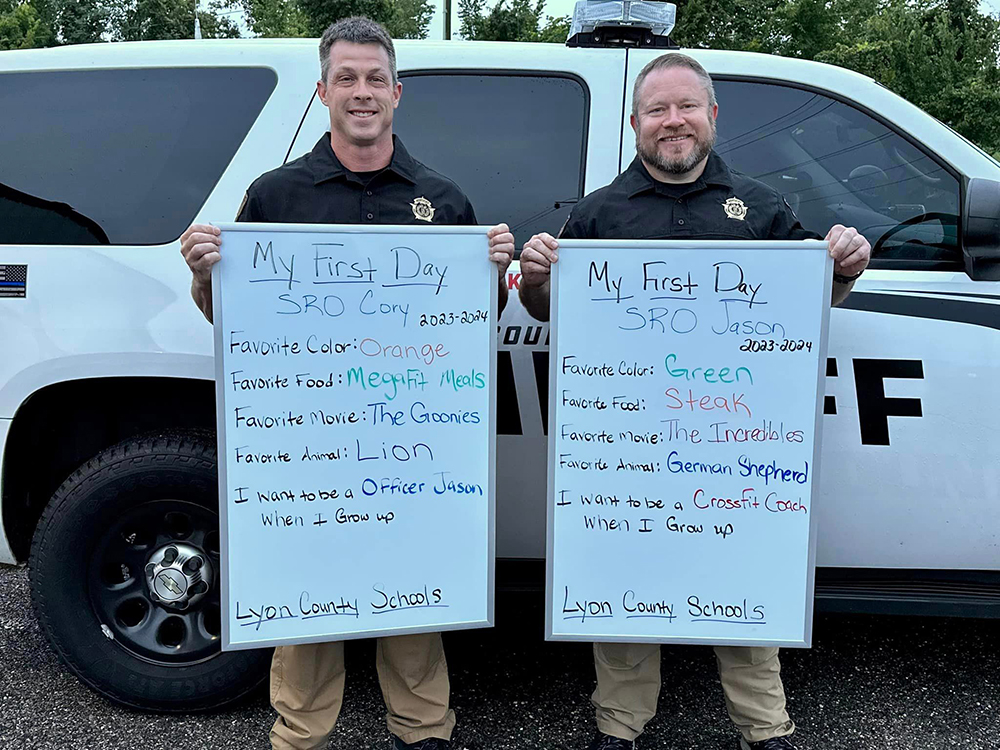 My First Day
SRO Cory
2023-2024
Favorite Color: Orange
Favorite Food: MegaFit Meals
Favorite Movie: The Goonies
Favorite Animal: Lion
I want to be a Officer Jason
When I Grow up
Lyon County Schools
My First Day
SRO Jason
2023-2024
Favorite Color: Green
Favorite Food: Steak
Favorite Movie: The Incredibles
Favorite Animal: German Shepherd
I want to be a CrossFit Coach
When I Grow up
Lyon County Schools
K
OU
FF